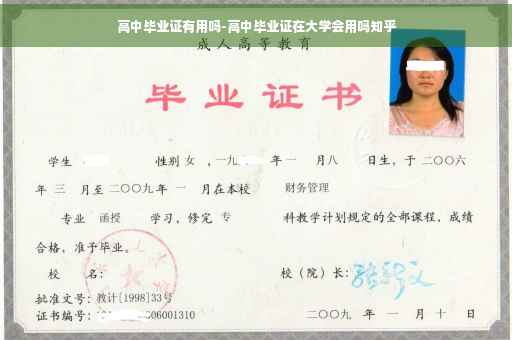 高中毕业证有用吗-高中毕业证在大学会用吗知乎
成人高等教育
毕业证书
学生 性别 女 ,一九 年 一 月 八 日生,于 二〇〇六
年 三 月至 二〇〇九 年 一 月在本校 财务管理
专业 函授 学习,修完 专 科教学计划规定的全部课程,成绩
合格,准予毕业。
校 名: 校(院)长:
批准文号:教计[1998]33号
证书编号: 06001310 二〇〇九 年 一 月 十 日